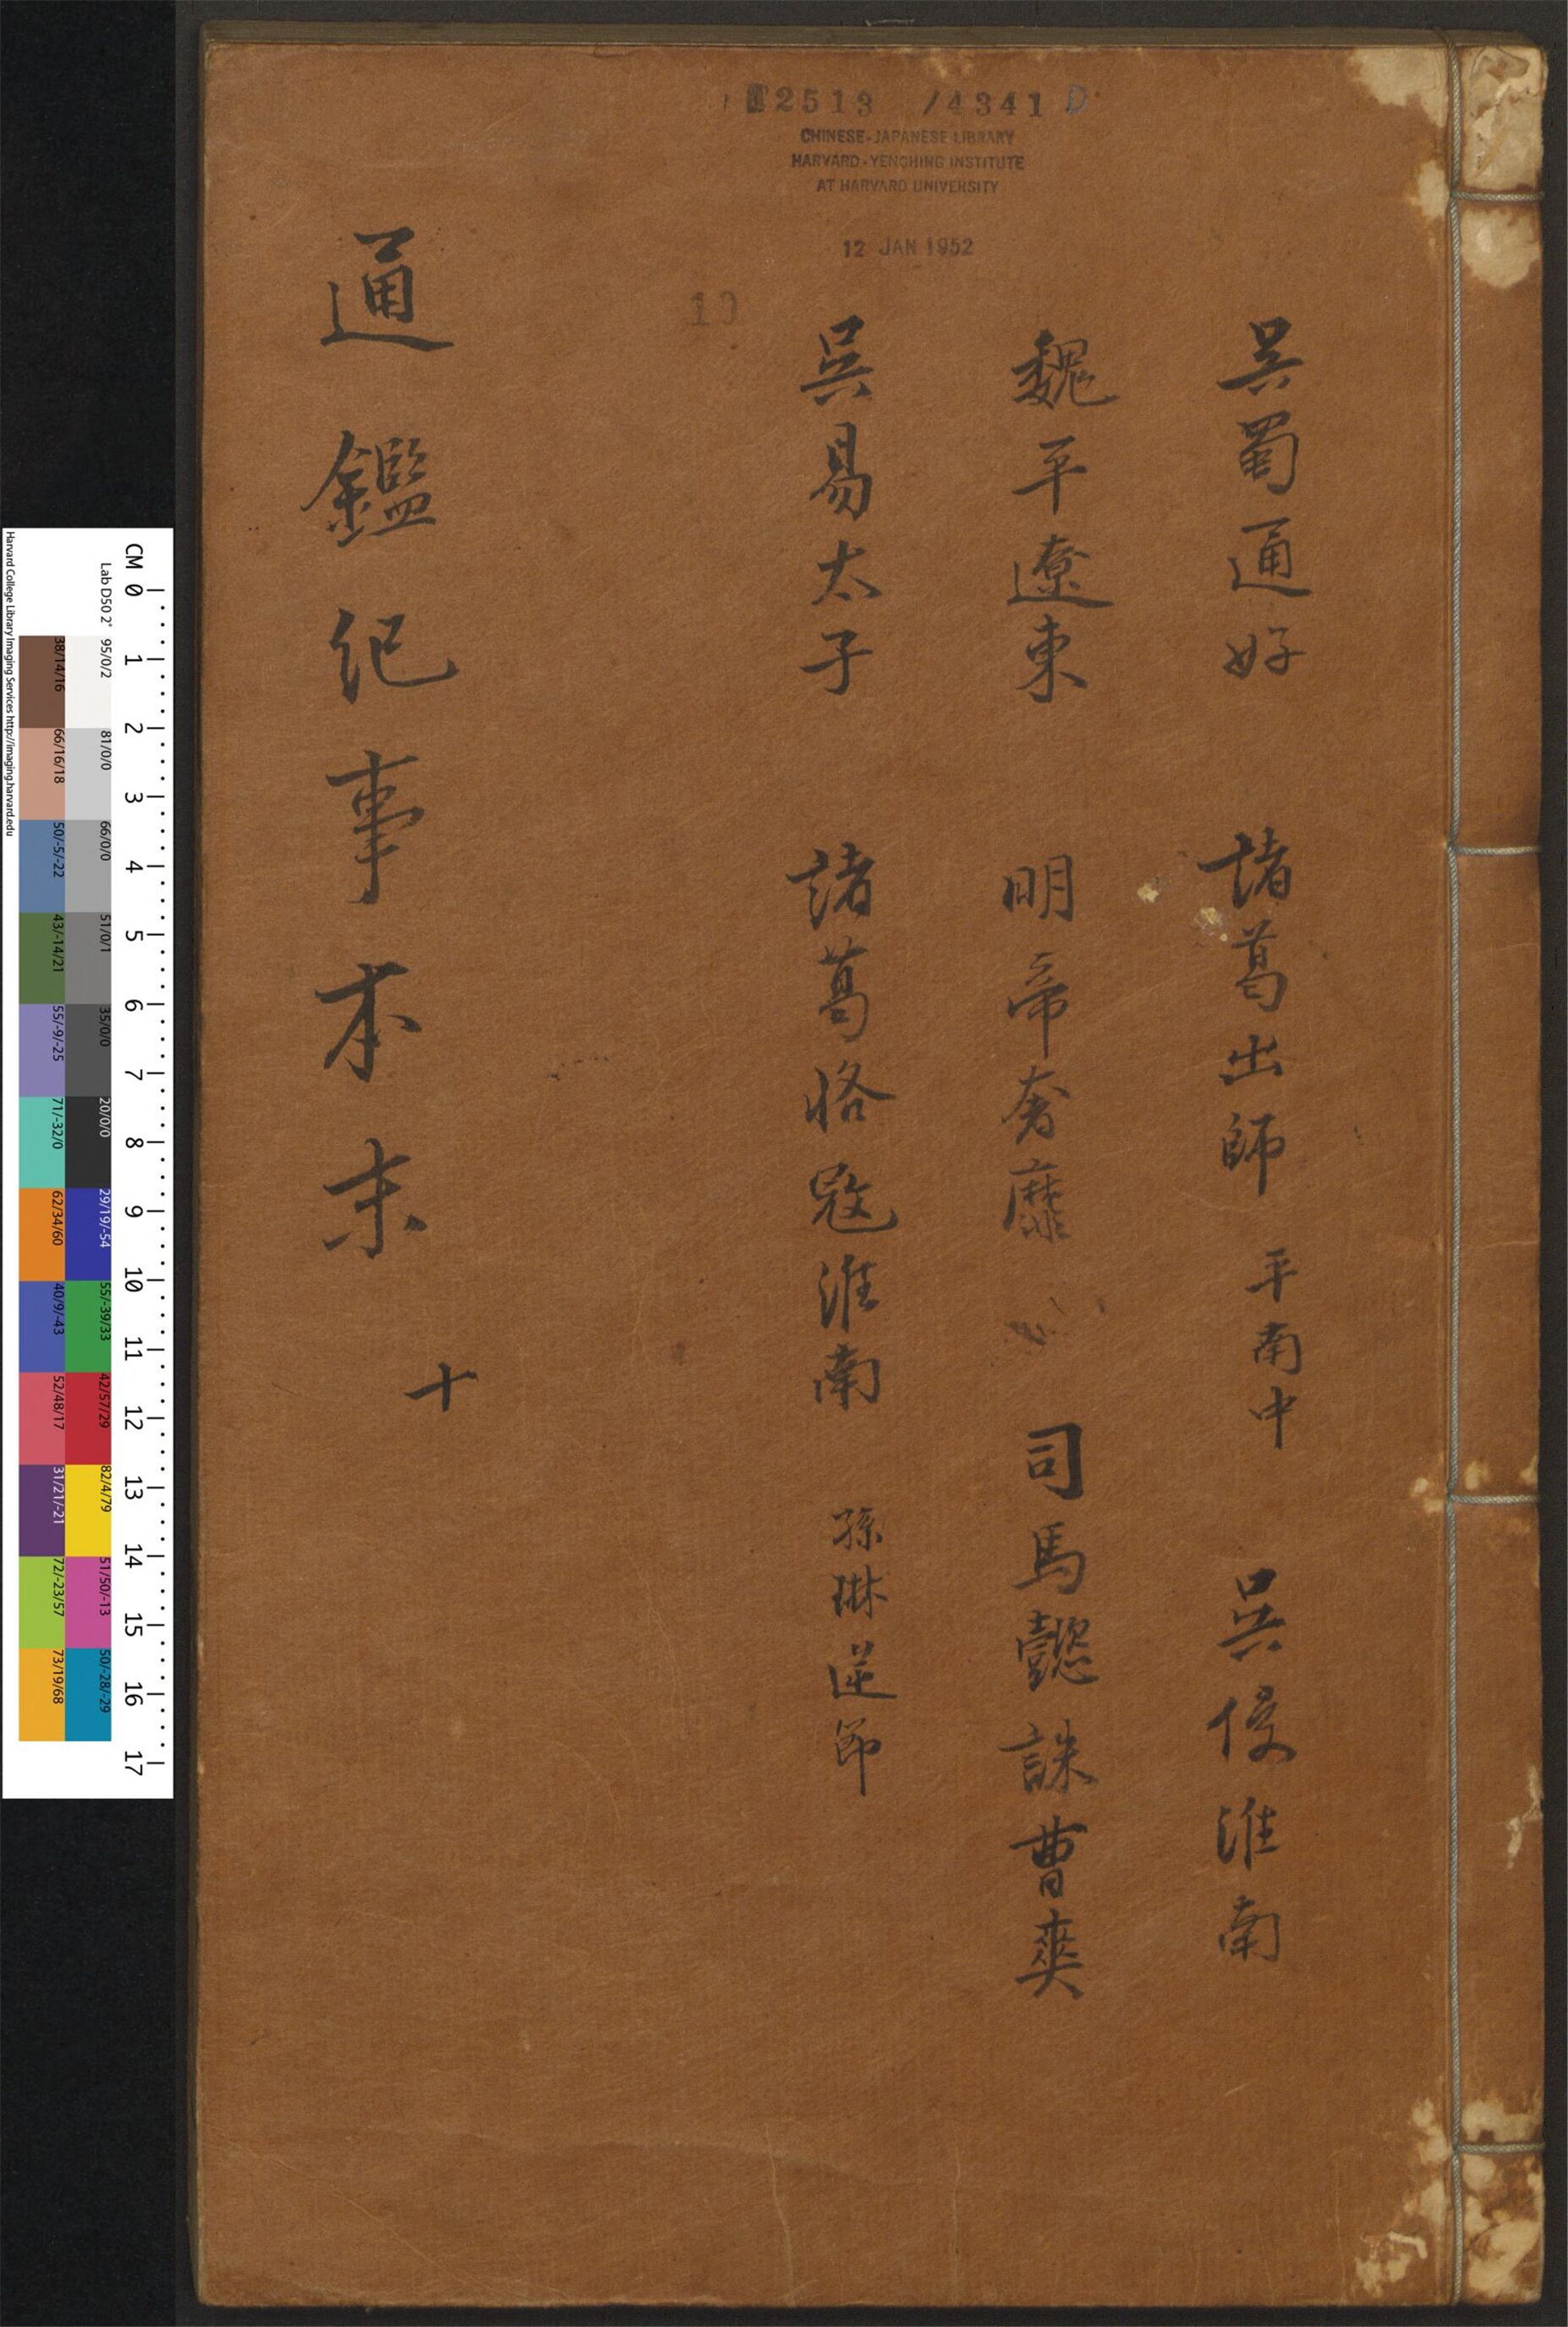 2513 /4341 D
CHINESE-JAPANESE LIBRARY
HARVARD-YENCHING INSTITUTE
AT HARVARD UNIVERSITY
12 JAN 1952
10
吳蜀通好 諸葛出師 平南中 吳侵淮南
魏平遼東 明帝奢靡 司馬懿誅曹爽
吳易太子 諸葛恪寇淮南 孫琳逆節
通鑑紀事本末 十
CM 0 1 2 3 4 5 6 7 8 9 10 11 12 13 14 15 16 17
Lab D50 2° 95/0/2 81/0/0 66/0/0 51/0/1 35/0/0 20/0/0 29/19/-54 55/-39/33 42/57/29 82/4/79 51/50/-13 50/-28/-29
38/14/16 66/16/18 50/-5/-22 43/-14/21 55/-9/-25 71/-32/0 62/34/60 40/9/-43 52/48/17 31/21/-21 72/-23/57 73/19/68
Harvard College Library Imaging Services http://imaging.harvard.edu